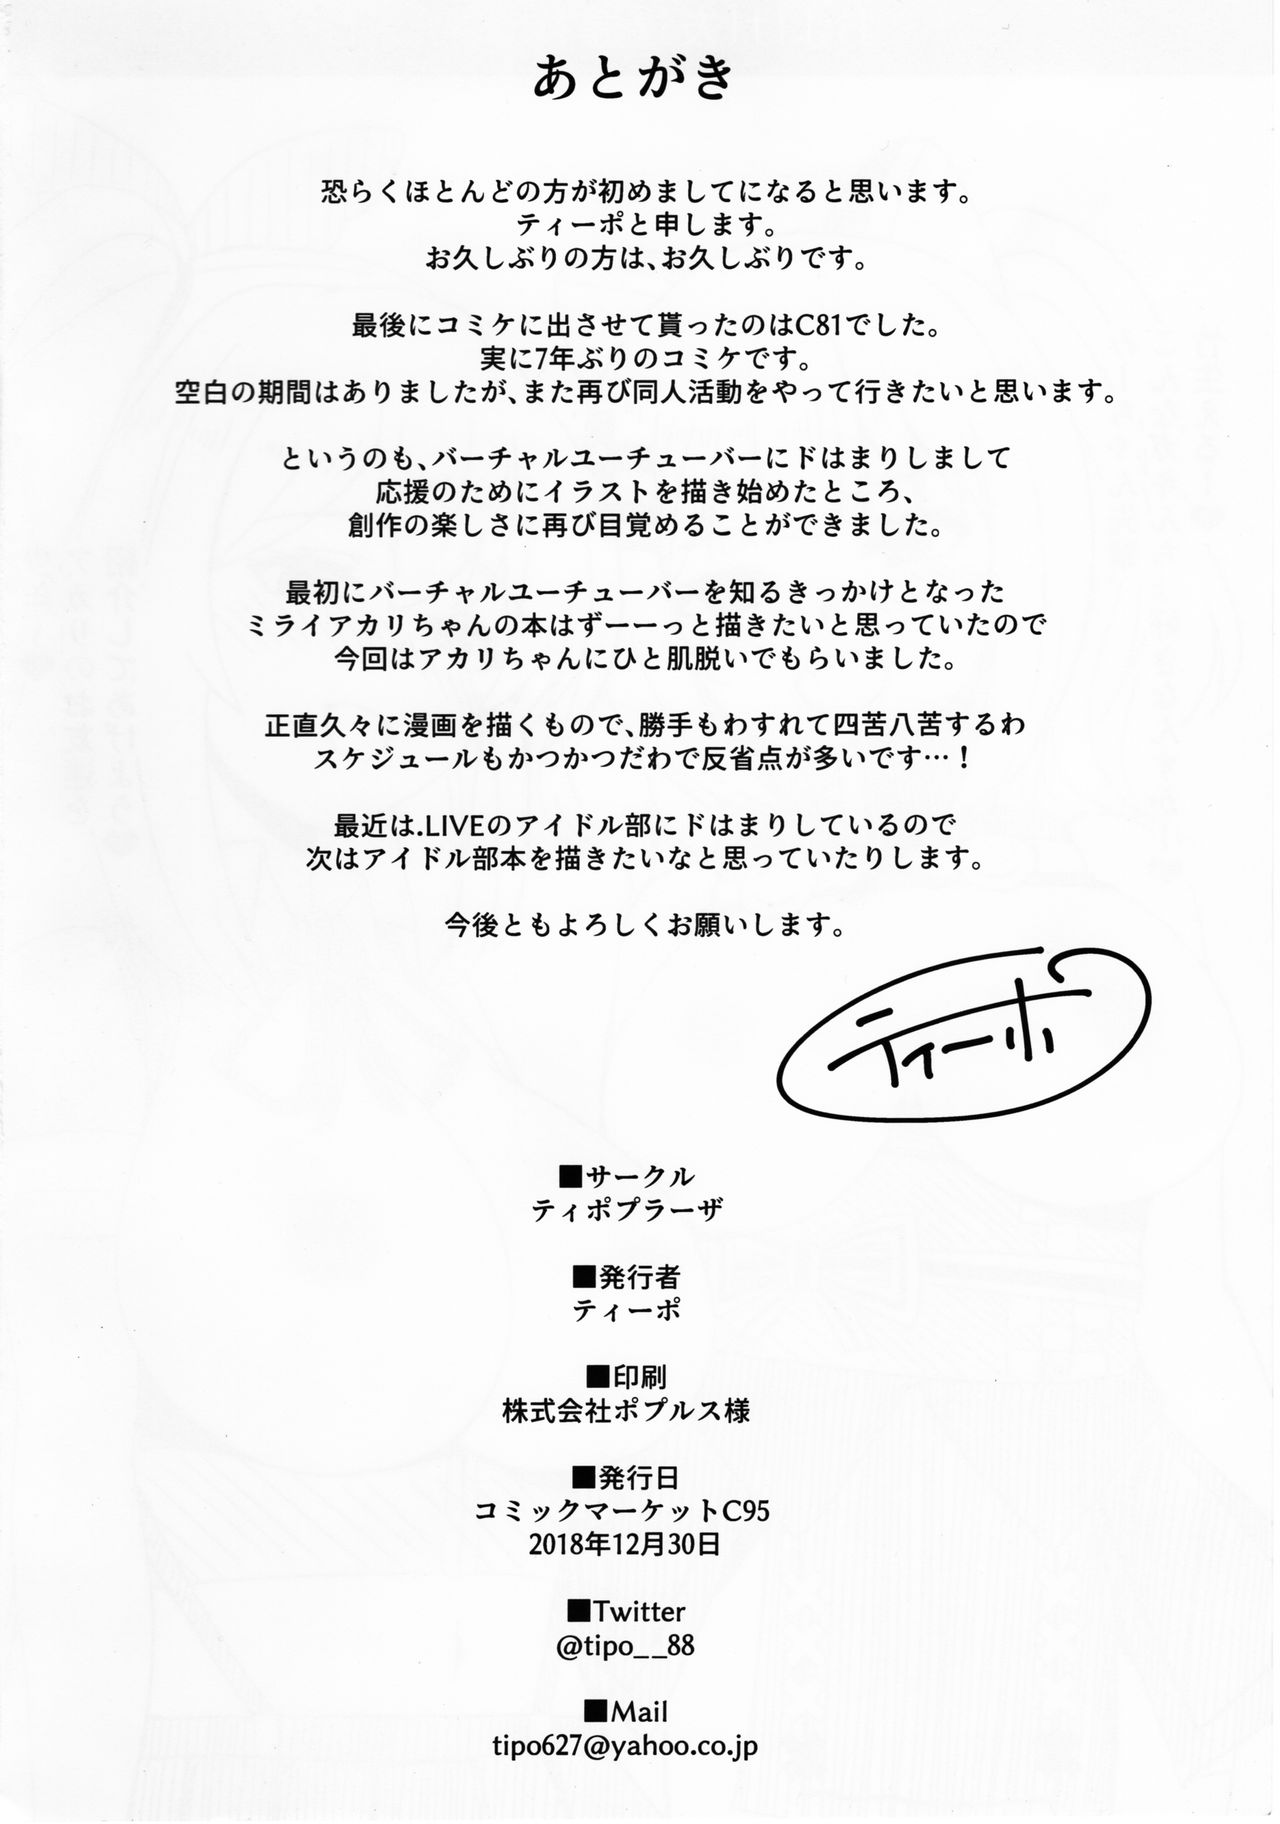 あとがき
恐らくほとんどの方が初めましてになると思います。
ティーポと申します。
お久しぶりの方は、お久しぶりです。
最後にコミケに出させて貰ったのはC81でした。
実に7年ぶりのコミケです。
空白の期間はありましたが、また再び同人活動をやって行きたいと思います。
というのも、バーチャルユーチューバーにドはまりしまして
応援のためにイラストを描き始めたところ、
創作の楽しさに再び目覚めることができました。
最初にバーチャルユーチューバーを知るきっかけとなった
ミライアカリちゃんの本はずーーっと描きたいと思っていたので
今回はアカリちゃんにひと肌脱いでもらいました。
正直久々に漫画を描くもので、勝手もわすれて四苦八苦するわ
スケジュールもかつかつだわで反省点が多いです…！
最近は.LIVEのアイドル部にドはまりしているので
次はアイドル部本を描きたいなと思っていたりします。
今後ともよろしくお願いします。
ティーポ
■サークル
ティポプラーザ
■発行者
ティーポ
■印刷
株式会社ポプルス様
■発行日
コミックマーケットC95
2018年12月30日
■Twitter
@tipo__88
■Mail
tipo627@yahoo.co.jp